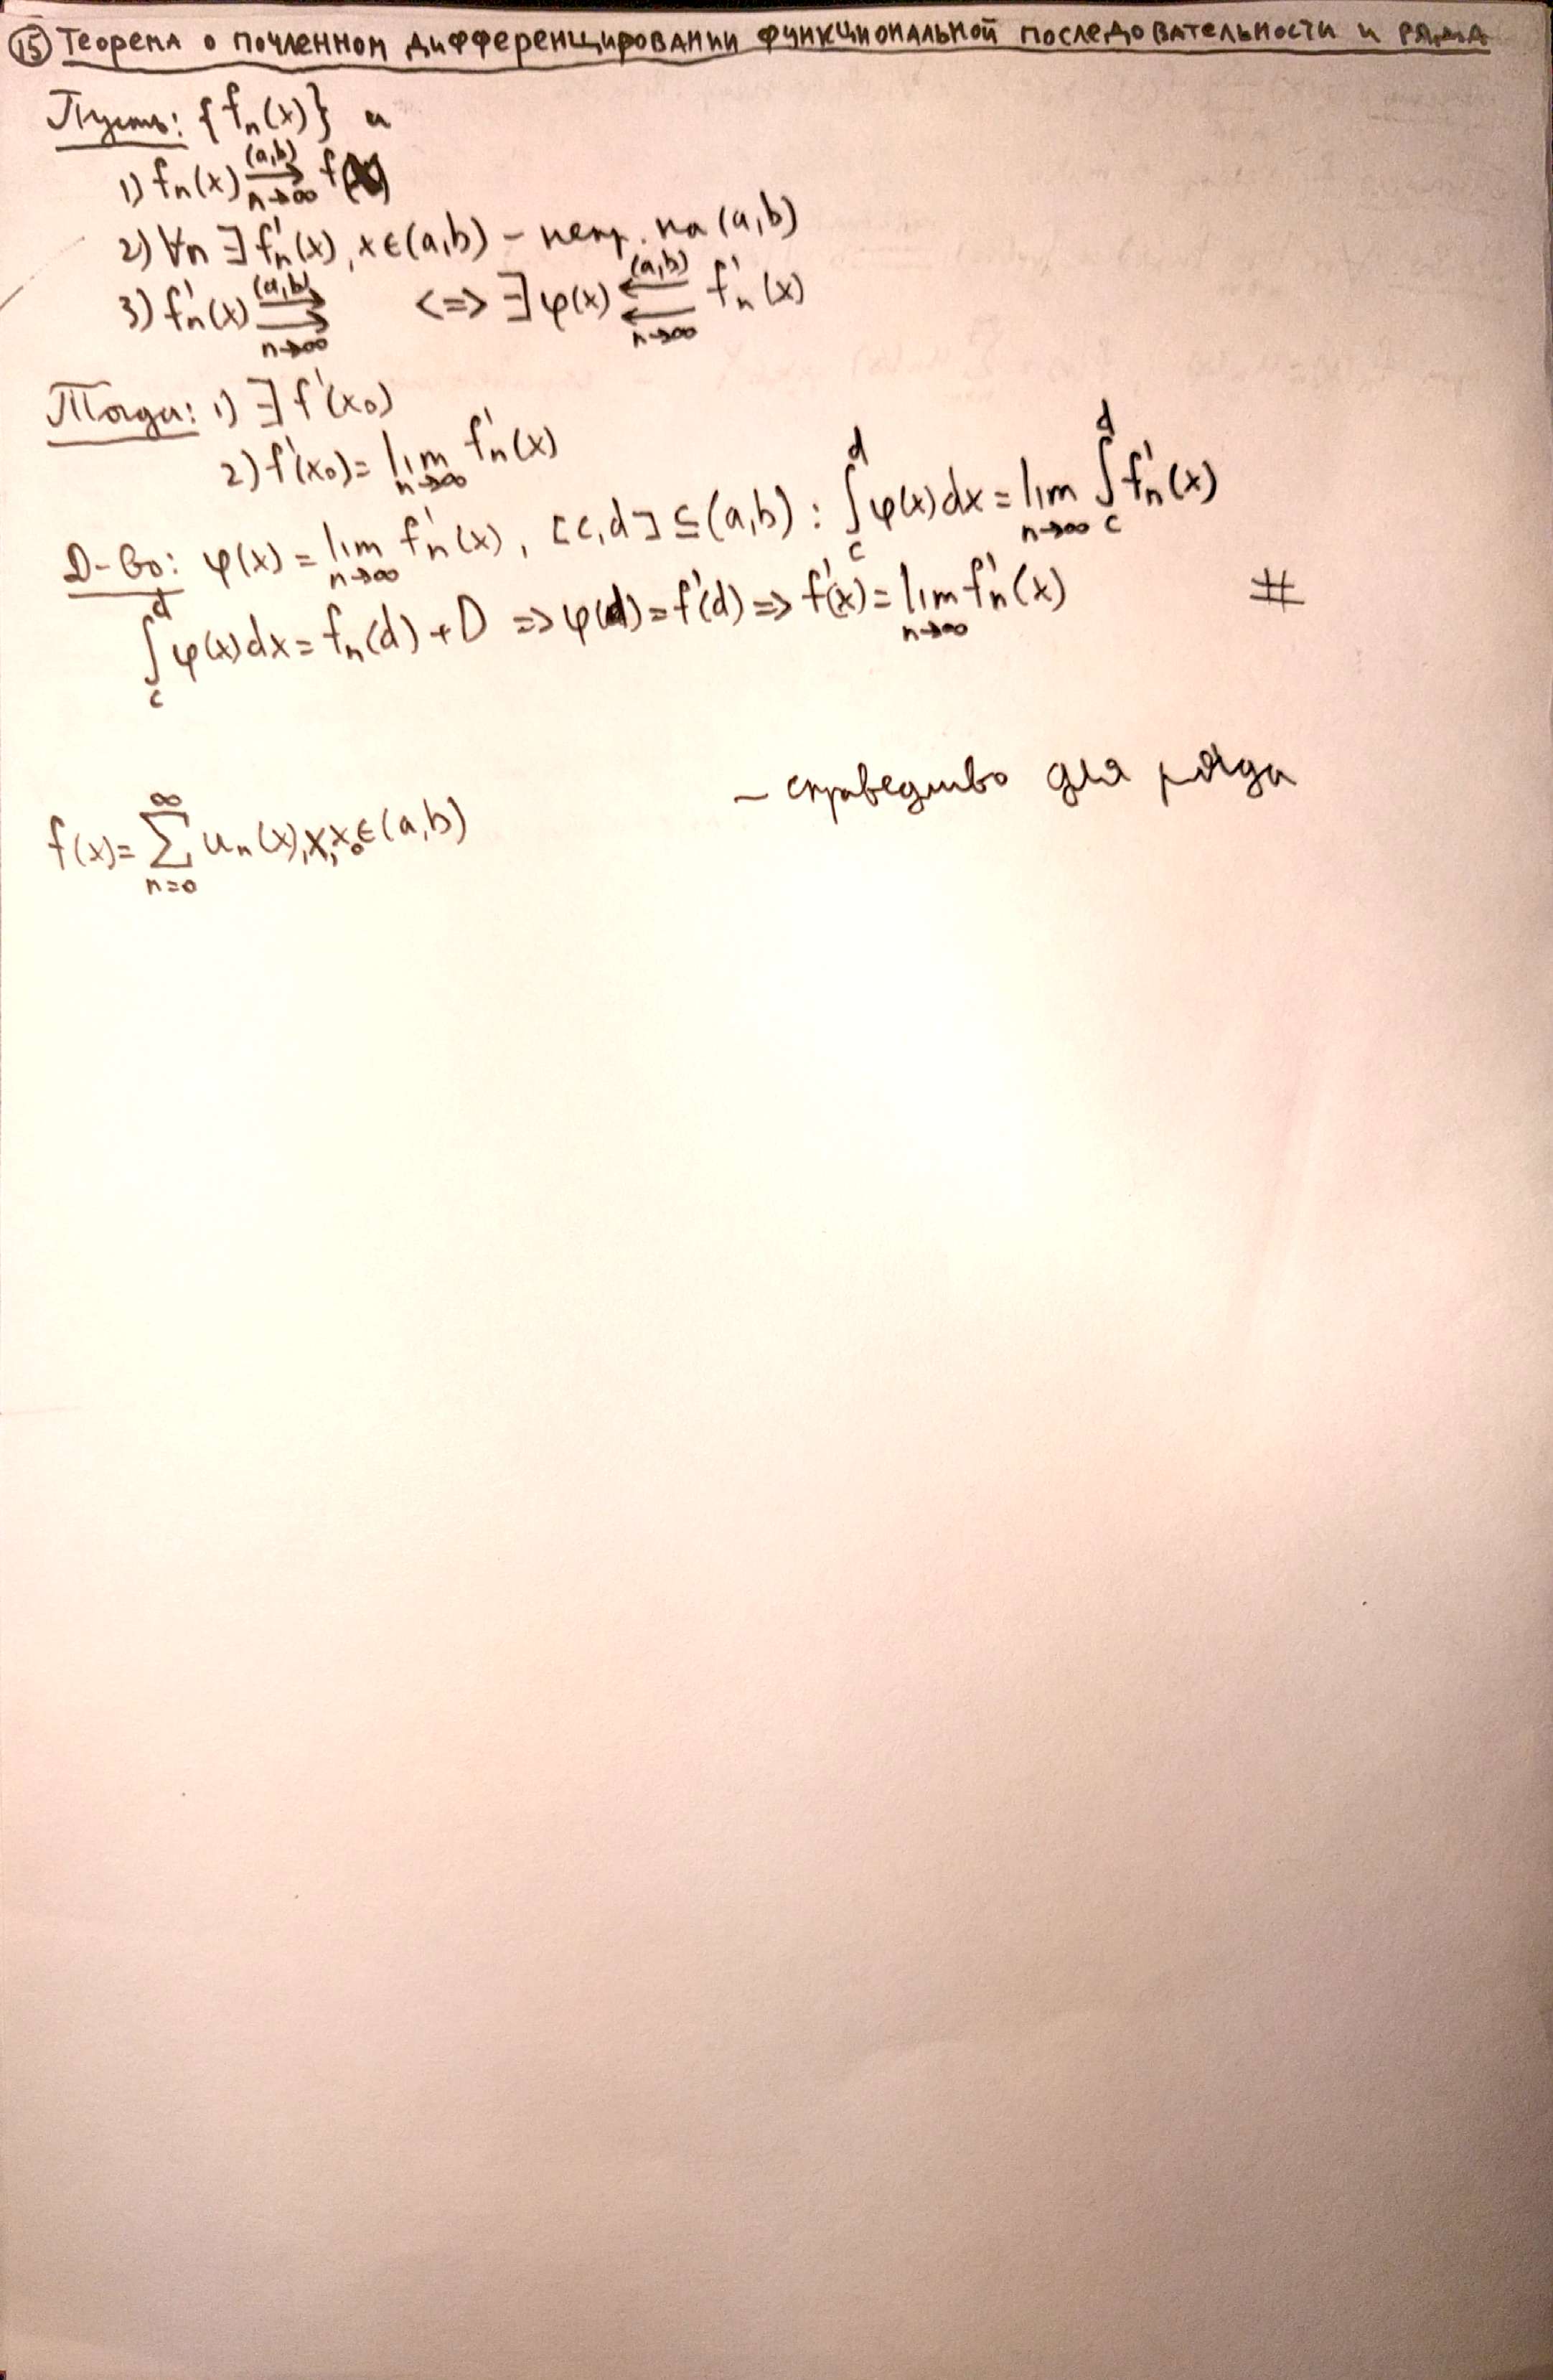 15 Теорема о почленном дифференцировании функциональной последовательности и ряда
Пусть: {fₙ(x)} и
1) fₙ(x) (a,b) → n→∞ f(x)
2) ∀n ∃ f'ₙ(x), x∈(a,b) – непр. на (a,b)
3) f'ₙ(x) (a,b) ⇉ n→∞ <=> ∃ φ(x) (a,b) ⇇ n→∞ f'ₙ(x)
Тогда: 1) ∃ f'(x₀)
2) f'(x₀) = lim n→∞ f'ₙ(x)
Д-во: φ(x) = lim n→∞ f'ₙ(x), [c,d] ⊆ (a,b) : ∫_c^d φ(x)dx = lim n→∞ ∫_c^d f'ₙ(x)
∫_c^d φ(x)dx = fₙ(d) + D => φ(d) = f'(d) => f'(x) = lim n→∞ f'ₙ(x) #
– справедливо для ряда
f(x) = ∑_{n=0}^∞ uₙ(x), x, x₀ ∈ (a,b)